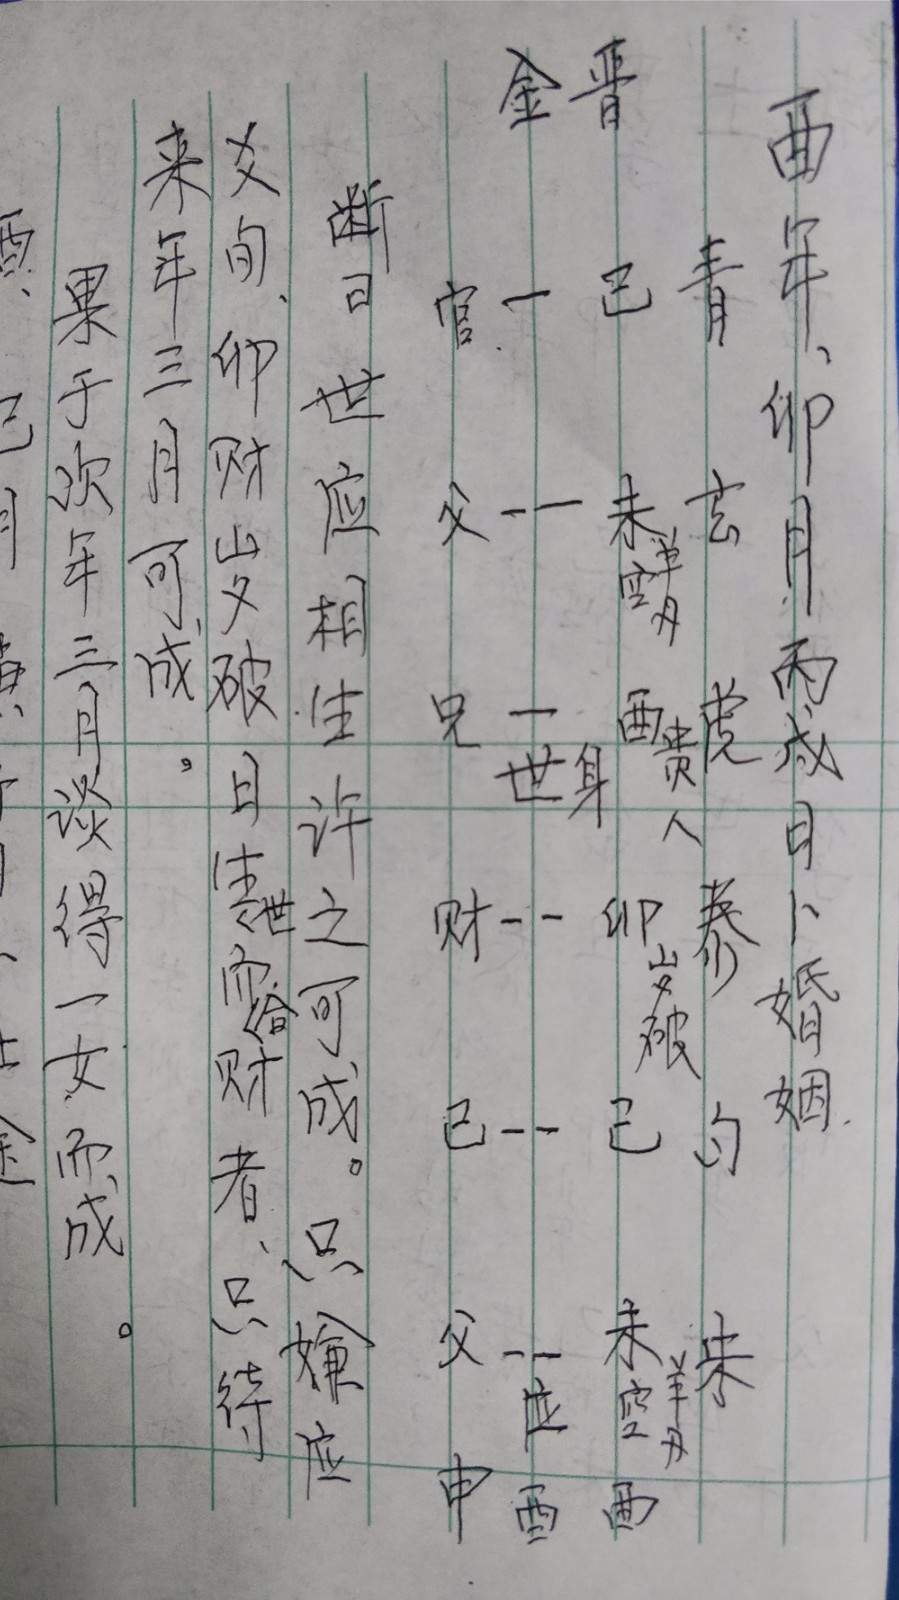 酉年、卯月丙戌日卜婚姻.
青 玄 虎 秦 勾 朱
巳 未空羊刃 酉贵人 卯岁破 巳 未空羊刃 酉
晋 身
金 一 -- 一世 -- -- --应 酉
官 父 兄 财 已 父 申
断曰世应相生许之可成。只嫌应
爻旬、卯财岁破日生世而合财者、只待
来年三月可成。
果于次年三月谈得一女而成。